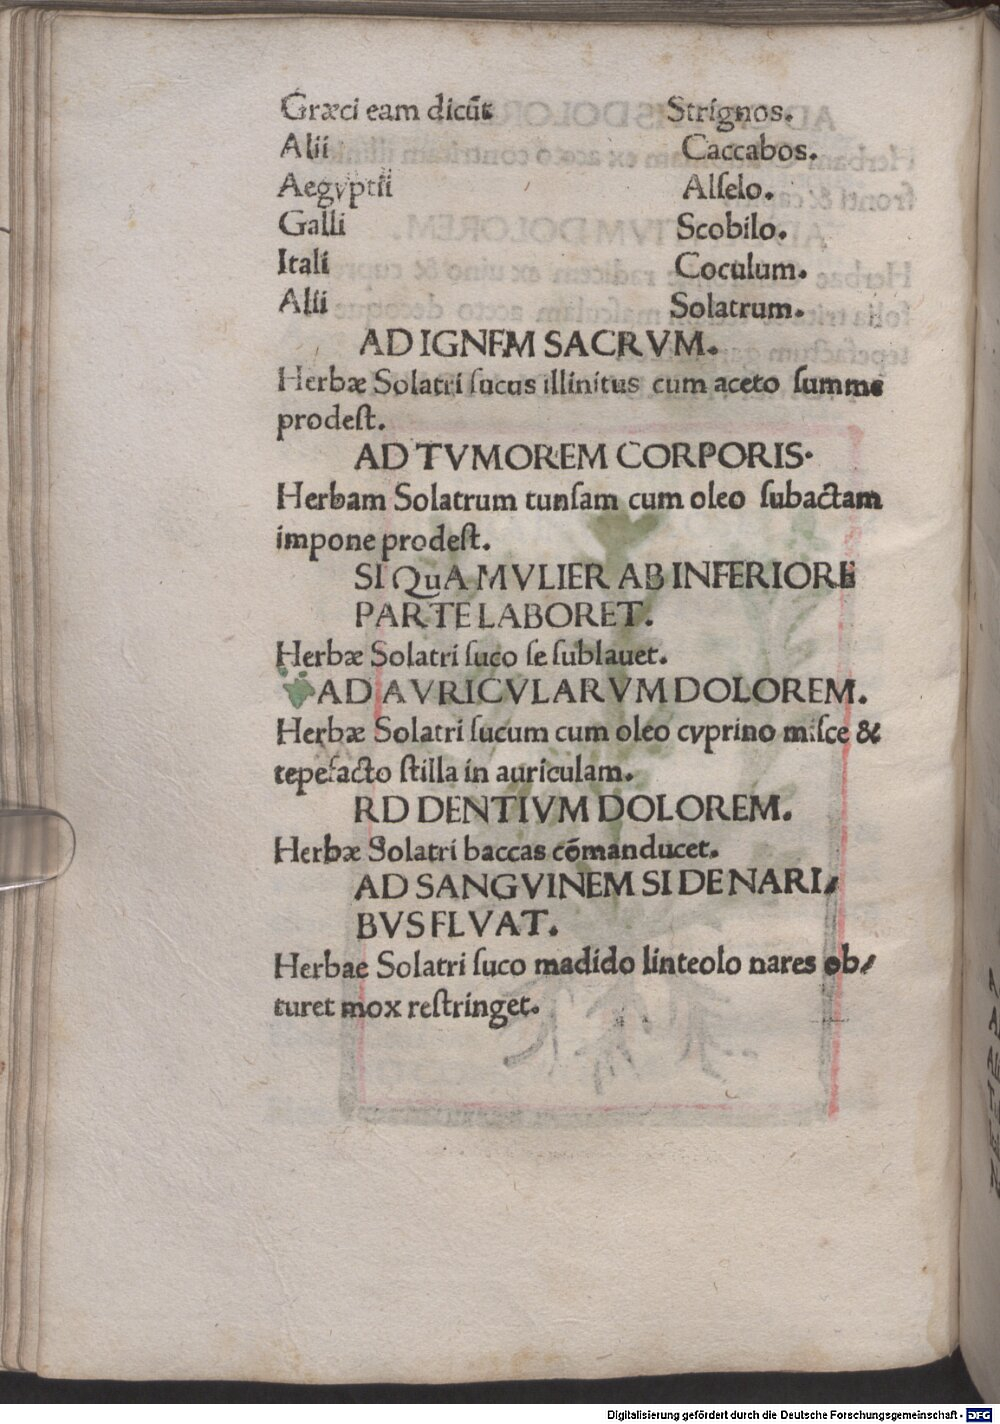 Græci eam dicūt Strignos.
Alii Caccabos.
Aegyptii Alſelo.
Galli Scobilo.
Itali Coculum.
Alii Solatrum.
AD IGNEM SACRVM.
Herbæ Solatri ſucus illinitus cum aceto ſumme
prodeſt.
AD TVMOREM CORPORIS.
Herbam Solatrum tunſam cum oleo ſubactam
impone prodeſt.
SI QuA MVLIER AB INFERIORE
PARTE LABORET.
Herbæ Solatri ſuco ſe ſublauet.
AD AVRICVLARVM DOLOREM.
Herbæ Solatri ſucum cum oleo cyprino miſce &
tepefacto ſtilla in auriculam.
RD DENTIVM DOLOREM.
Herbæ Solatri baccas cōmanducet.
AD SANGVINEM SI DE NARI/
BVS FLVAT.
Herbae Solatri ſuco madido linteolo nares ob/
turet mox reſtringet.
Digitalisierung gefördert durch die Deutsche Forschungsgemeinschaft - DFG